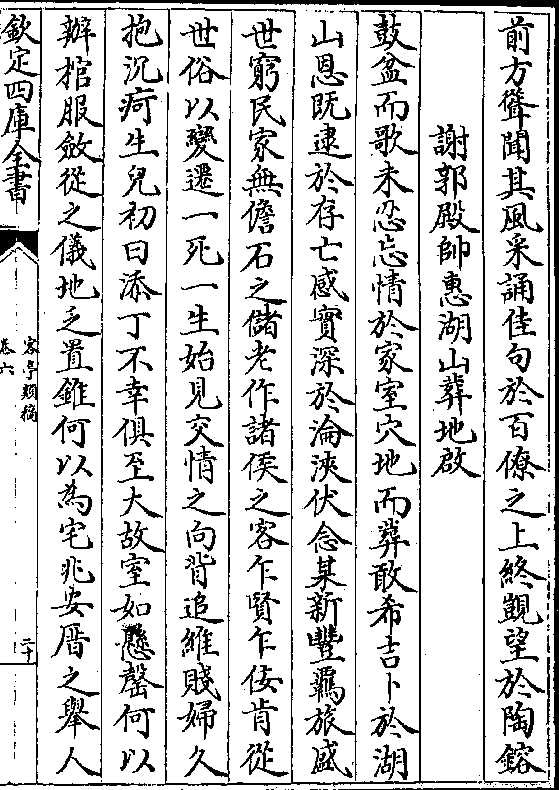 前方聳聞其風采誦佳句於百僚之上終覬望於陶鎔
謝郭殿帥惠湖山葬地啟
鼓盆而歌未忍忘情於家室穴地而葬敢希吉卜於湖
山恩既逮於存亡感實深於淪浹伏念某新豐羈旅盛
世窮民家無儋石之儲老作諸侯之客乍賢乍佞肯從
世俗以變遷一死一生始見交情之向背追維賤婦久
抱沉疴生兒初曰添丁不幸俱至大故室如懸罄何以
辦棺服斂從之儀地乏置錐何以為宅兆安厝之舉人
欽定四庫全書
客亭類稿
卷六
二十